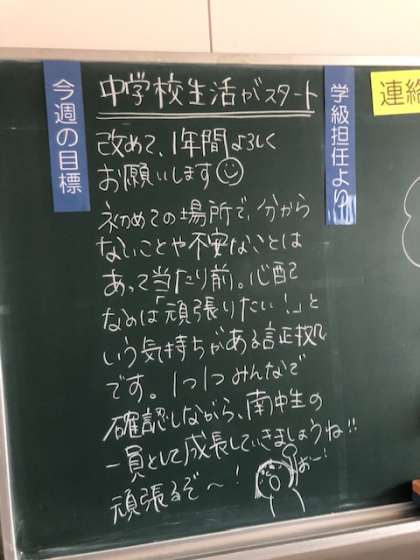 今週の目標
中学校生活がスタート
学級担任より
連絡
改めて、1年間よろしく
お願いします
初めての場所で、分から
ないことや不安なことは
あって当たり前。心配
なのは「頑張りたい!」と
いう気持ちがある証拠
です。1つ1つみんなで
確認しながら、南中生の
一員として成長していきましょうね!!
頑張るぞ〜!
おー!